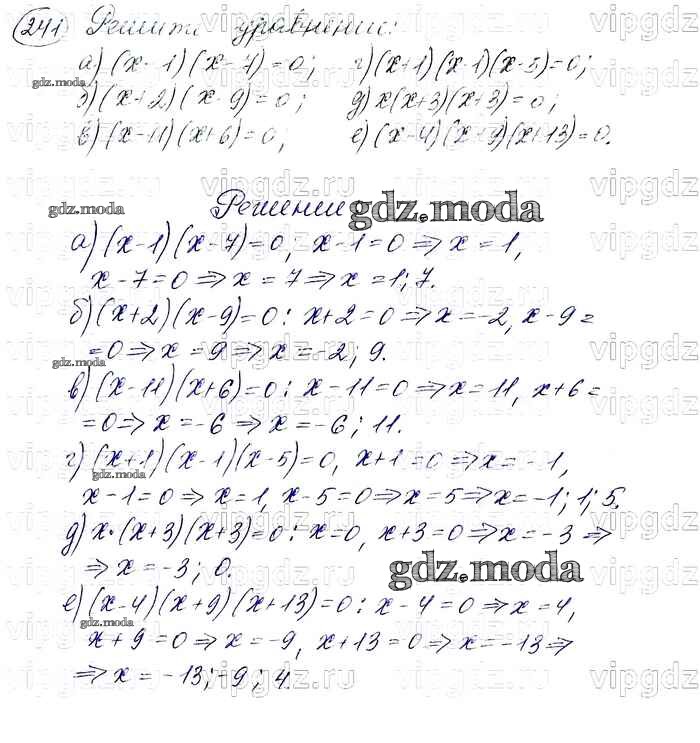 241 Решите уравнение:
а) (x-1)(x-7)=0; г) (x+1)(x-1)(x-5)=0;
б) (x+2)(x-9)=0; д) x(x+3)(x+3)=0;
в) (x-11)(x+6)=0; е) (x-4)(x+9)(x+13)=0.
Решение
gdz.moda
а) (x-1)(x-7)=0, x-1=0 ⇒ x=1,
x-7=0 ⇒ x=7 ⇒ x=1; 7.
б) (x+2)(x-9)=0: x+2=0 ⇒ x=-2, x-9=
=0 ⇒ x=9 ⇒ x=-2; 9.
в) (x-11)(x+6)=0: x-11=0 ⇒ x=11, x+6=
=0 ⇒ x=-6 ⇒ x=-6; 11.
г) (x+1)(x-1)(x-5)=0, x+1=0 ⇒ x=-1,
x-1=0 ⇒ x=1, x-5=0 ⇒ x=5 ⇒ x=-1; 1; 5.
д) x·(x+3)(x+3)=0: x=0, x+3=0 ⇒ x=-3 ⇒
⇒ x=-3; 0.
gdz.moda
е) (x-4)(x+9)(x+13)=0: x-4=0 ⇒ x=4,
x+9=0 ⇒ x=-9, x+13=0 ⇒ x=-13 ⇒
⇒ x=-13; -9; 4.